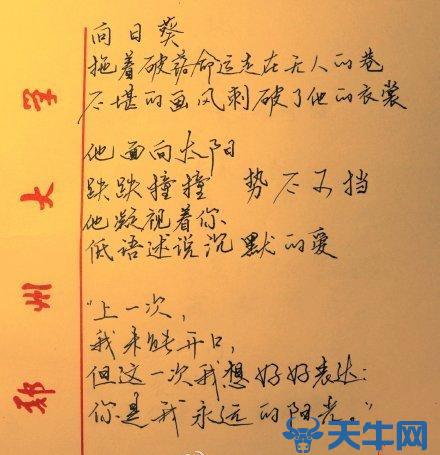 向日葵
拖着破落命运走在无人的巷
不堪的画风刺破了他的衣裳
他面向太阳
跌跌撞撞 势不可挡
他凝视着你
低语述说沉默的爱
“上一次，
我未能开口，
但这一次我想好好表达：
你是我永远的阳光。”
郑州大学
天牛网